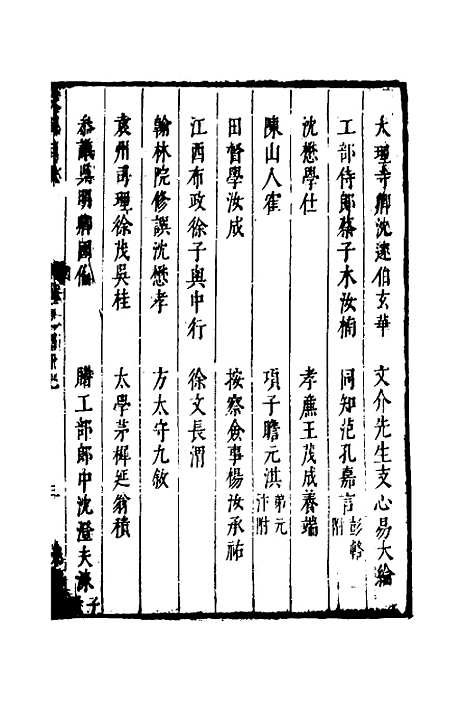 大理寺卿沈逵伯玄華　文介先生支心易大綸
工部侍郎蔡子木汝楠　同知范孔嘉言彭輅附
沈懋學仕　孝廉王茂成養端
陳山人隺　項子瞻元淇弟元汴附
田督學汝成　按察僉事楊汝承祐
江西布政徐子與中行　徐文長渭
翰林院修譔沈懋孝　方太守九敘
袁州司理徐茂吳桂　太學茅穉延翁積
叅議吳明卿國倫　贈工部郎中沈澄夫
三